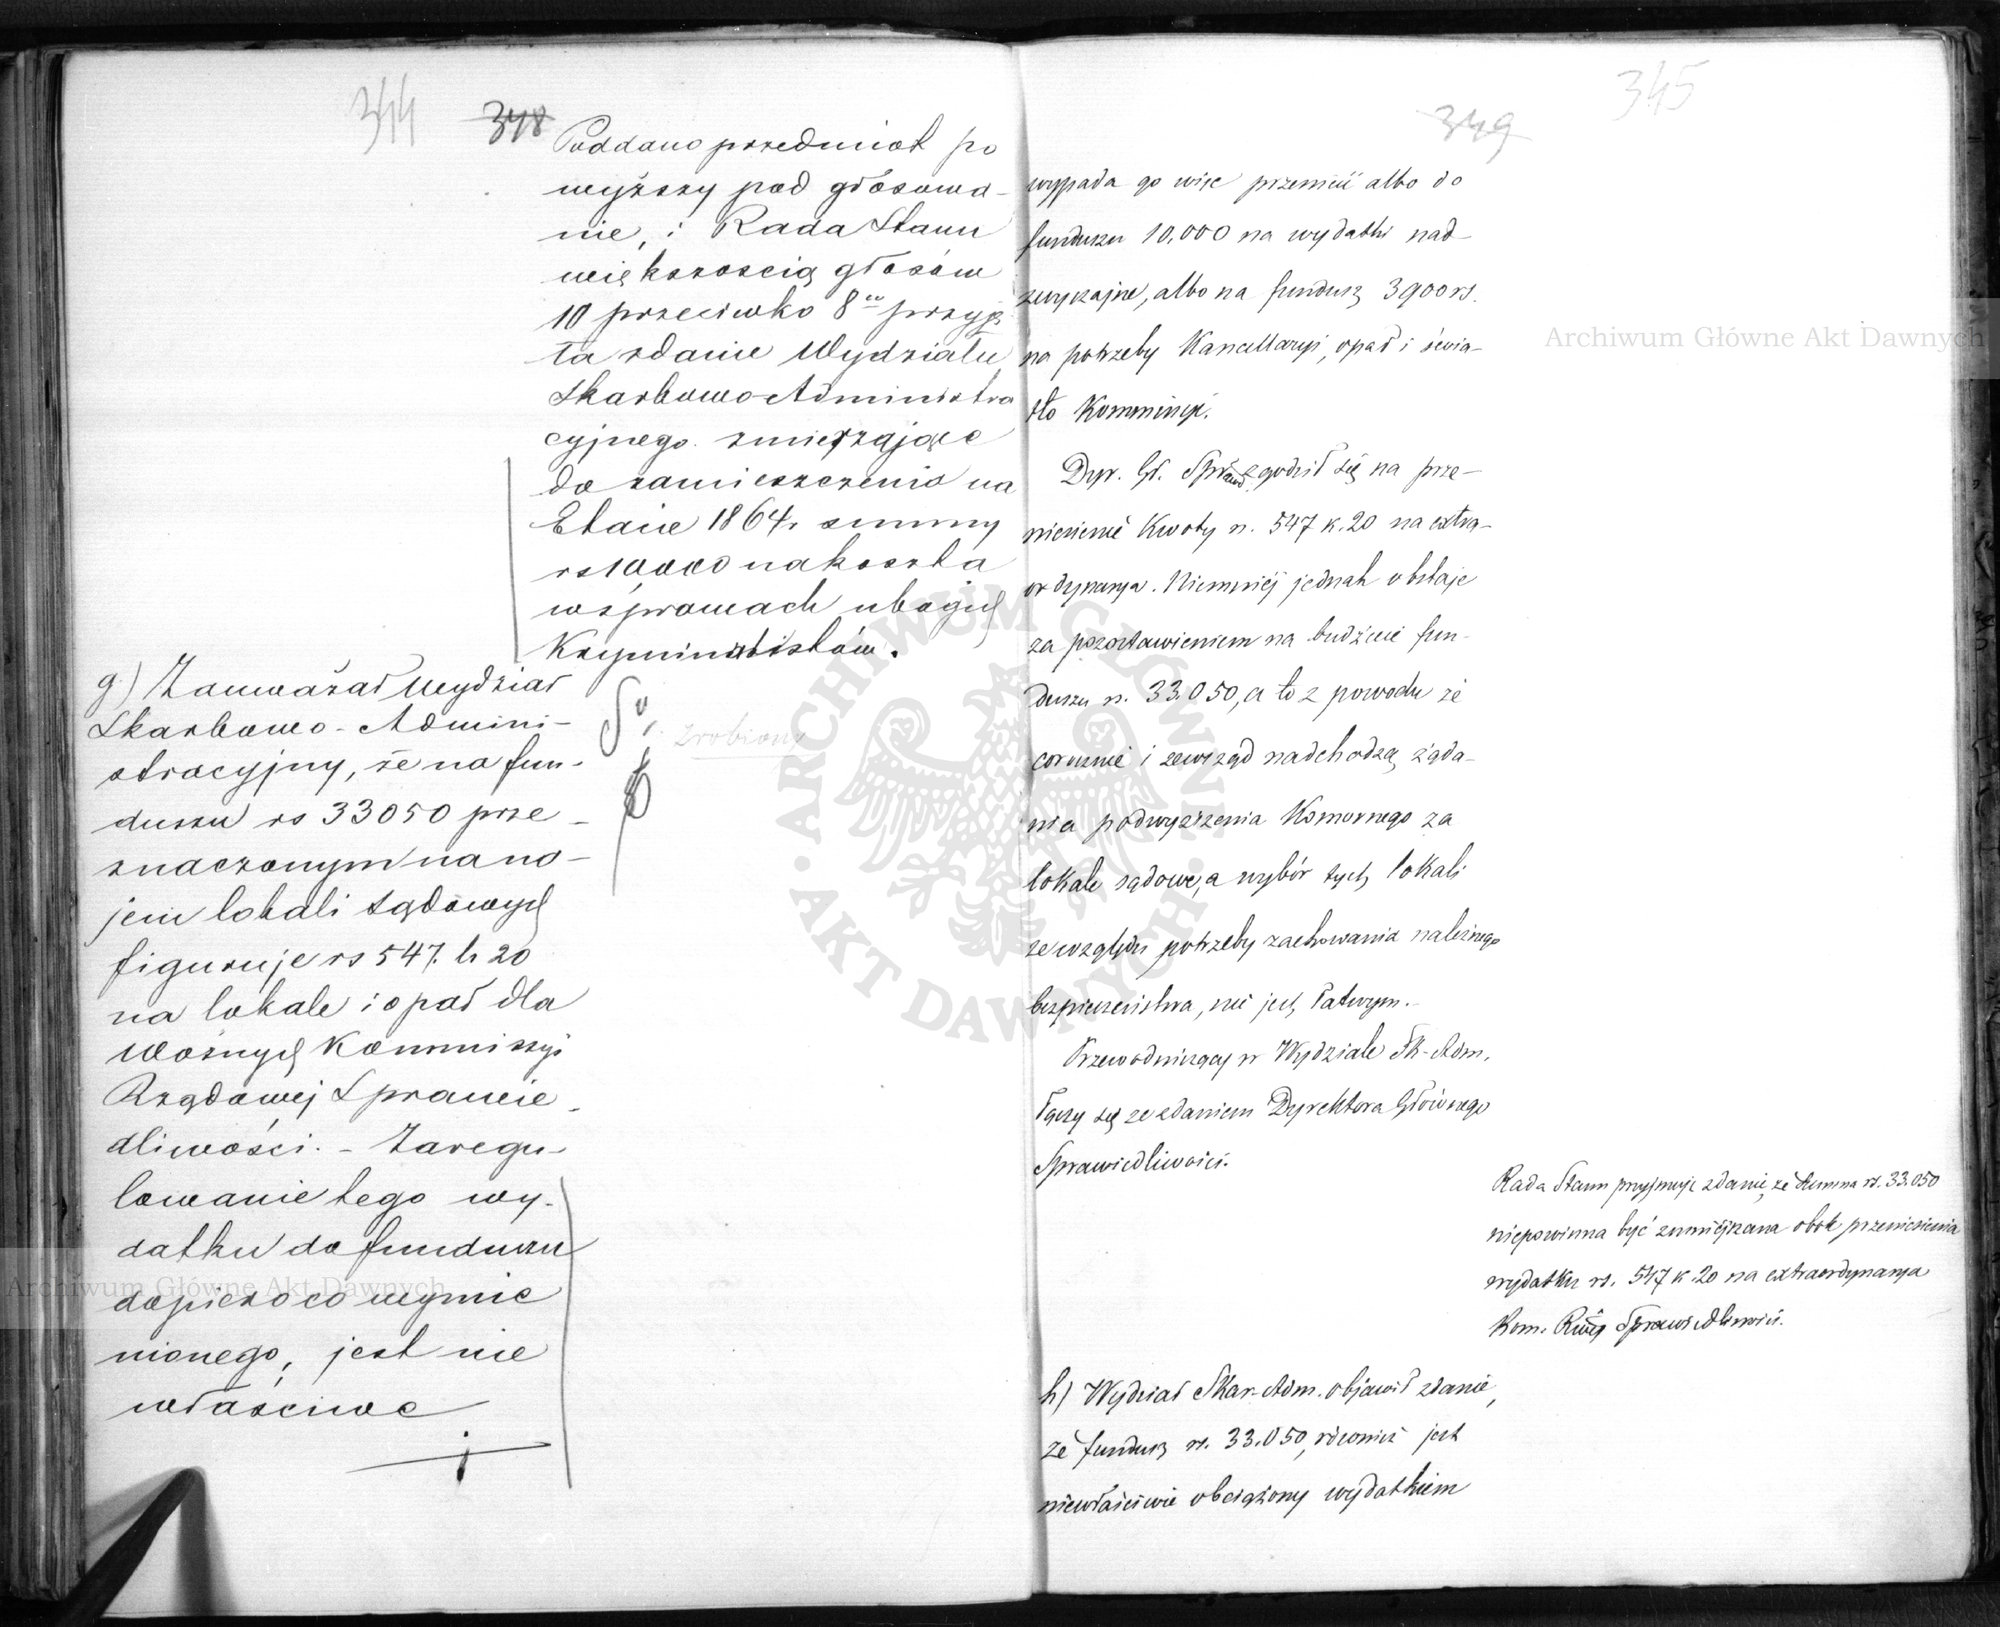 344
348
Poddano przedmiot po
wyższy pod głosowa-
nie, i Rada Stanu
większoscią głosów
10 przeciwko 8 przyję
ta zdanie Wydziału
Skarbowo-Administra
cyjnego zmierzające
do zamieszczenia na
Etacie 1864 r. summy
rs 10000 na koszta
w sprawach ubogich
Kryminalistów.
g) Zauważał Wydział
Skarbowo-Admini-
stracyjny, że na fun-
duszu rs 33050 prze-
znaczonym na na-
jem lokali sądowych
figuruje rs 547. k 20
na lokale i opał dla
woźnych Kommissyi
Rządowej Sprawie-
dliwości. - Zaregu-
lowanie tego wy-
datku do funduszu
dopiero co wymie
nionego, jest nie
właściwe
zrobiony
345
349
wypada go więc przenieść albo do
funduszu 10,000 na wydatki nad-
zwyczajne, albo na fundusz 3900 rs.
na potrzeby Kancellaryi, opał i świa-
tło Kommissyi.
Dyr. Gł. Spraw. zgodził się na prze-
niesienie Kwoty rs. 547 k. 20 na extra-
ordynarya. Niemniej jednak obstaje
za pozostawieniem na budżecie fun-
duszu rs. 33.050, a to z powodu że
corocznie i zewsząd nadchodzą żąda-
nia podwyższenia Komornego za
lokale sądowe, a wybór tych lokali
ze względu potrzeby zachowania należnego
bezpieczeństwa, nie jest łatwym.-
Przewodniczący w Wydziale Sk-Adm.
łączy się ze zdaniem Dyrektora Głównego
Sprawiedliwości.
Rada Stanu przyjmuje zdanie, że Summa rs. 33.050
niepowinna być zmniejszana obok przeniesienia
wydatku rs. 547 k. 20 na extraordynarya
Kom. Rząd. Sprawiedliwości.
h) Wydział Skar-Adm. objawił zdanie,
że fundusz rs. 33.050, również jest
niewłaściwie obciążony wydatkiem
Archiwum Główne Akt Dawnych
Archiwum Główne Akt Dawnych
ARCHIWUM GŁÓWNE AKT DAWNYCH